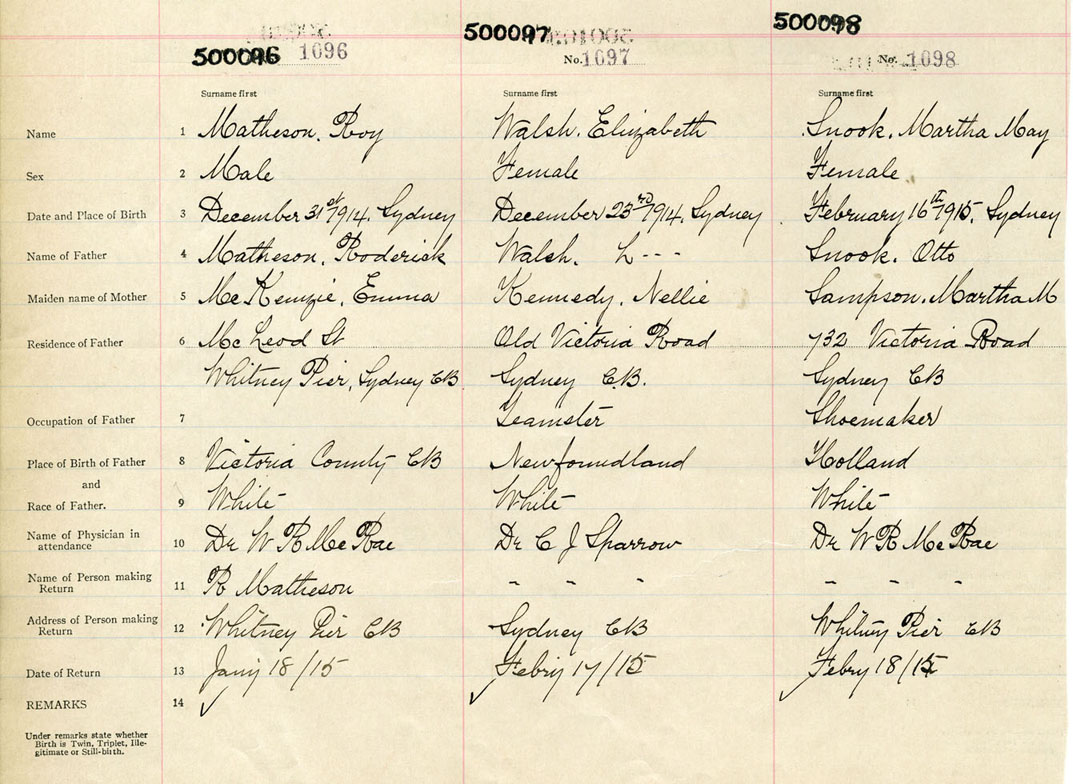 500096 1096
500097 No. 1097
500098 No. 1098
Surname first Surname first Surname first
Name 1 Matheson, Roy Walsh, Elizabeth Snook, Martha May
Sex 2 Male Female Female
Date and Place of Birth 3 December 31st 1914, Sydney December 23rd 1914, Sydney February 16th 1915, Sydney
Name of Father 4 Matheson, Roderick Walsh, L--- Snook, Otto
Maiden name of Mother 5 McKenzie, Emma Kennedy, Nellie Sampson, Martha M
Residence of Father 6 McLeod St Old Victoria Road 732 Victoria Road
Whitney Pier, Sydney CB Sydney C.B. Sydney CB
Occupation of Father 7 Teamster Shoemaker
Place of Birth of Father 8 Victoria County CB Newfoundland Holland
and
Race of Father. 9 White White White
Name of Physician in
attendance 10 Dr W R McRae Dr C J Sparrow Dr W R McRae
Name of Person making
Return 11 R Matheson - - - - - -
Address of Person making
Return 12 Whitney Pier CB Sydney CB Whitney Pier CB
Date of Return 13 Jany 18/15 Febry 17/15 Febry 18/15
REMARKS 14 ✓ ✓ ✓
Under remarks state whether
Birth is Twin, Triplet, Ille-
gitimate or Still-birth.